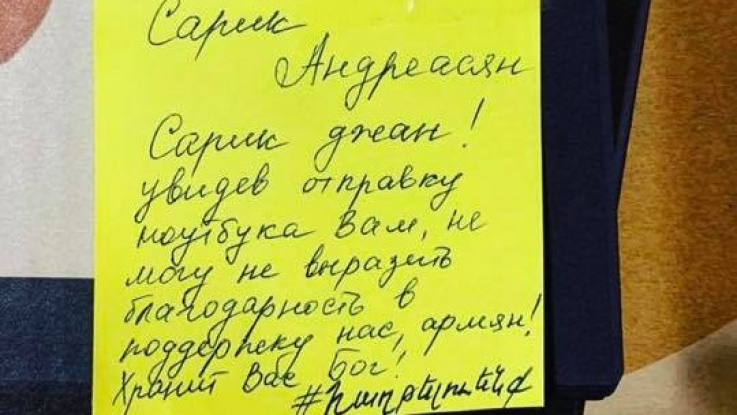 Сарик
Андреасян
Сарик джан!
увидев отправку
ноутбука Вам, не
могу не выразить
благодарность в
поддержку нас, армян!
Хранит Вас Бог!